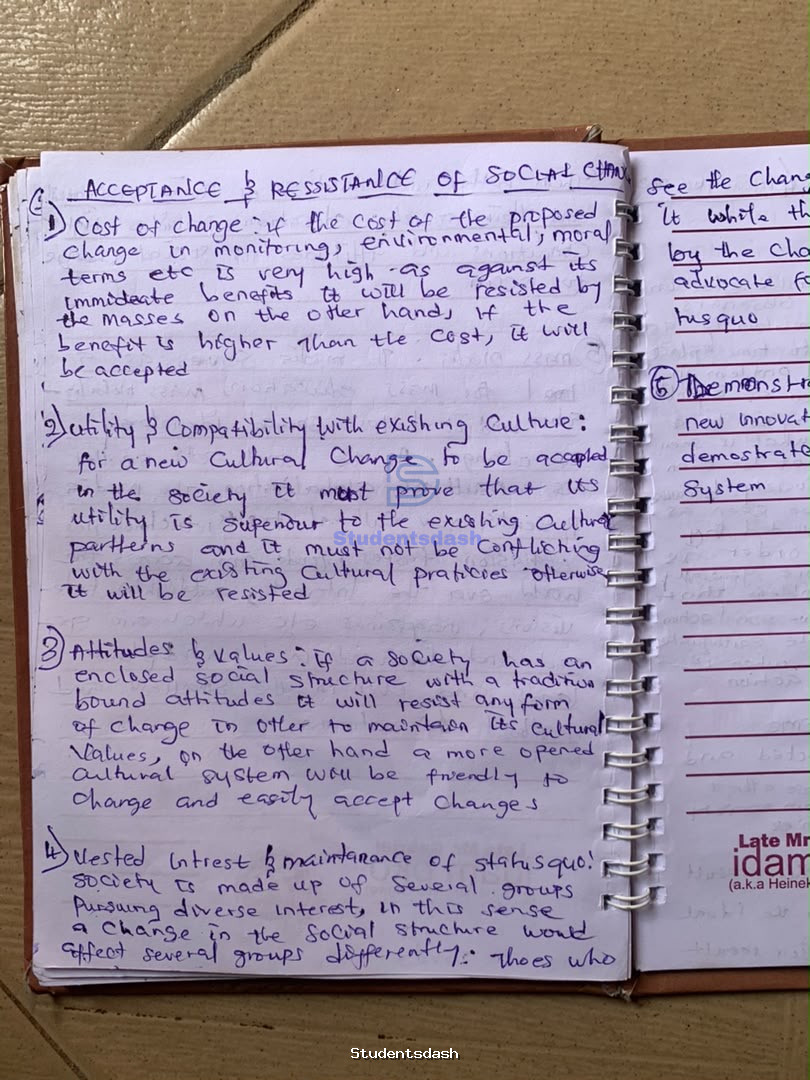 ACCEPTANCE & RESSISTANCE OF SOCIAL CHAN
1) Cost of change: if the cost of the proposed
change in monitoring, environmental, moral
terms etc is very high as against its
immideate benefits it will be resisted by
the masses on the other hand, if the
benefit is higher than the cost, it will
be accepted
2) Utility & Compatibility with existing Culture:
for a new Cultural Change to be accepted
in the society it must prove that its
utility is superiour to the existing Cultural
partterns and it must not be Conflicting
with the existing Cultural praticies otherwise
it will be resisted
3) Attitudes & Values: if a society has an
enclosed social structure with a tradition
bound attitudes it will resist any form
of change in other to maintain its Cultural
Values, on the other hand a more opened
Cultural system will be friendly to
Change and easily accept Changes
4) Vested Intrest & maintanance of status quo:
Society is made up of several groups
Pursuing diverse interest, in this sense
a Change in the Social structure would
affect several groups differently. Thoes who
see the Chan
it while th
by the Cha
advocate fo
tus quo
5 Demonstra
new innovat
demostrate
System
Late Mr
idam
(a.k.a Heinek
Studentsdash
Studentsdash